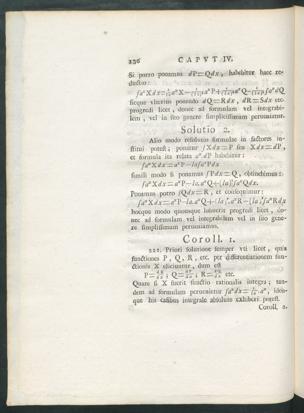 136 CAPVT IV.
Si porro ponamus dP=Qdx, habebitur haec re-
ductio:
∫aˣXdx=1/la aˣX−1/(la)²aˣP+1/(la)³aˣQ−1/(la)³∫aˣdQ
sicque vlterius ponendo dQ=Rdx, dR=Sdx etc.
progredi licet, donec ad formulam vel integrabi-
lem, vel in suo genere simplicissimam perueniatur.
Solutio 2.
Alio modo resolutio formulae in factores in-
stitui potest; ponatur ∫Xdx=P seu Xdx=dP,
et formula ita relata aˣ.dP habebitur:
∫aˣXdx=aˣP−la∫aˣPdx
simili modo si ponamus ∫Pdx=Q, obtinebimus:
∫aˣXdx=aˣP−la.aˣQ+(la)²∫aˣQdx.
Ponamus porro ∫Qdx=R, et consequimur:
∫aˣXdx=aˣP−la.aˣQ+(la)².aˣR−(la)³∫aˣRdx
hocque modo quousque lubuerit progredi licet, do-
nec ad formulam vel integrabilem vel in suo gene-
re simplicissimam perueniamus.
Coroll. 1.
221. Priori solutione semper vti licet, quia
functiones P, Q, R, etc. per differentiationem fun-
ctionis X eliciuntur, dum est
P=dX/dx; Q=dP/dx; R=dQ/dx etc.
Quare si X fuerit functio rationalis integra; tan-
dem ad formulam peruenietur ∫aˣdx=1/la.aˣ, ideo-
que his casibus integrale absolute exhiberi potest.
Coroll. 2.